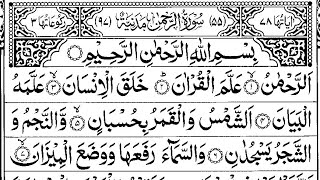 اٰيَاتُهَا ٧٨ (٥٥) سُوْرَةُ الرَّحْمٰنِ مَدَنِيَّةٌ (٩٧) رُكُوْعَاتُهَا ٣
بِسْمِ اللّٰهِ الرَّحْمٰنِ الرَّحِيْمِ
اَلرَّحْمٰنُ ۙ۝١ عَلَّمَ الْقُرْاٰنَ ؕ۝٢ خَلَقَ الْاِنْسَانَ ۙ۝٣ عَلَّمَهُ
الْبَيَانَ ۝٤ اَلشَّمْسُ وَالْقَمَرُ بِحُسْبَانٍ ۪۝٥ وَّالنَّجْمُ وَ
الشَّجَرُ يَسْجُدٰنِ ۝٦ وَالسَّمَآءَ رَفَعَهَا وَوَضَعَ الْمِيْزَانَ ۙ۝٧